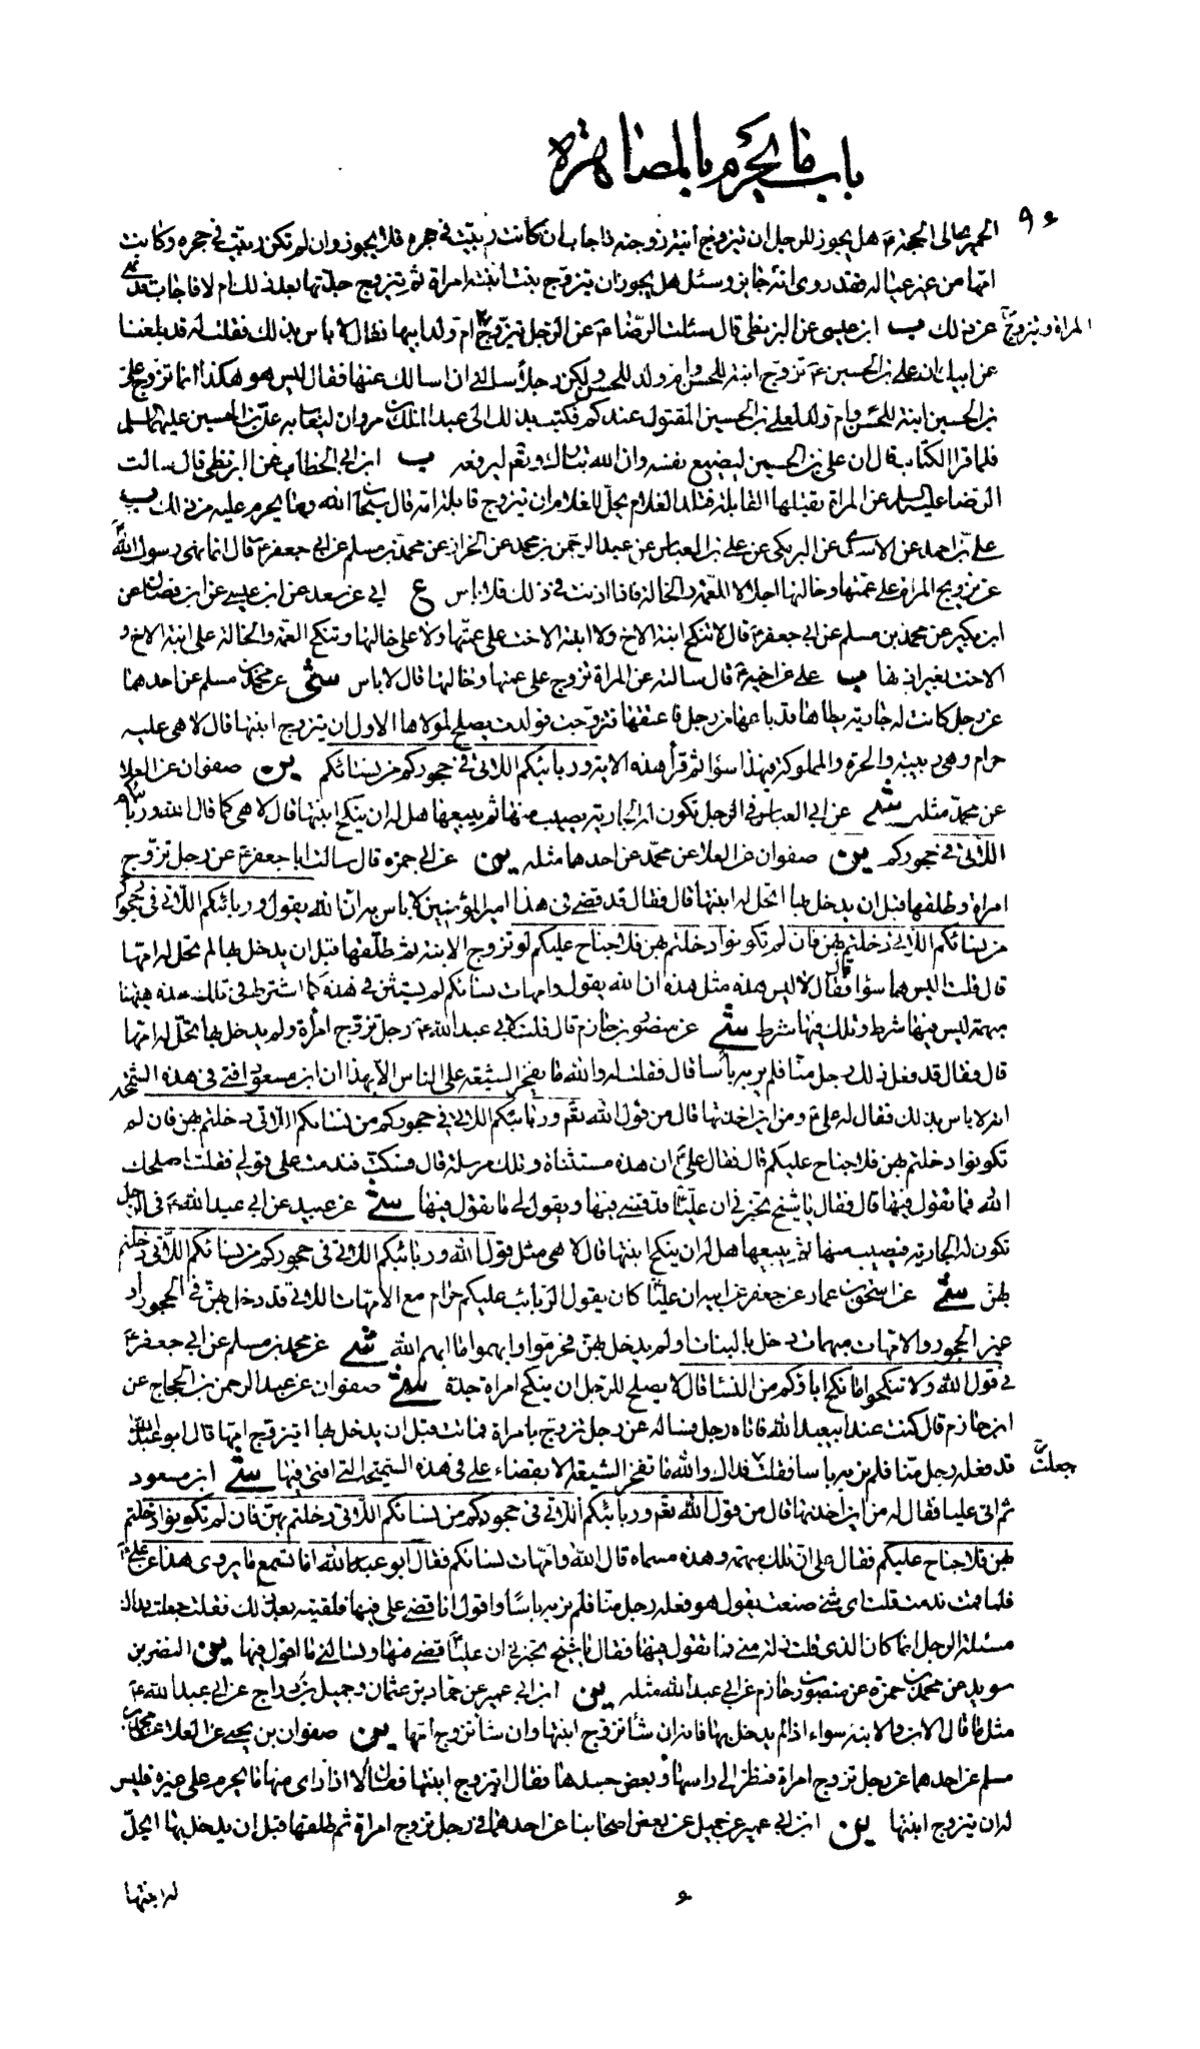 باب ما يحرم بالمصاهرة
الحميري الى الحجة م هل يجوز للرجل ان يتزوج ابنة زوجته فاجاب ان كانت ربيت في حجره فلا يجوز وان لم تكن ربيت في حجره وكانت
امها من غير عياله فقد روى انه جايز وسئل هل يجوز ان يتزوج بنت ابنة امراة ثم يتزوج جدتها بعد ذلك ام لا فاجاب قد نهى
عن ذلك ب ابن عيسى عن البزنطي قال سئلت الرضا ع عن الرجل تيزوج المراة ويتزوج ام ولد ابيها فقال لا باس بذلك فقلت له قد بلغنا
عن ابيك ان علي بن الحسين ع تزوج ابنة للحسن وام ولد للحسن ولكن رجلا سالني ان اسالك عنها فقال ليس هو هكذا انما تزوج علي
بن الحسين ابنة للحسن وام ولد لعلي بن الحسين المقتول عندكم فكتب بذلك الى عبد الملك بن مروان ليعاب به علي بن الحسين عليهما السلم
فلما قرا الكتاب قال ان علي بن الحسين ليضيع نفسه وان الله تبارك وتعم ليرفعه ب ابن ابي الخطاب عن البزنطي قال سالت
الرضا عليه السلم عن المراة تقبلها القابلة فتلد الغلام يحل للغلام ان يتزوج قابلة امه قال سبحان الله وما يحرم عليه من ذلك
علي بن احمد عن الاسدي عن البرمكي عن علي بن العباس عن عبد الرحمن بن محمد عن الخزاز عن محمد بن مسلم عن ابي جعفر ع قال انما نهى رسول الله
عن تزويج المراة على عمتها وخالتها اجلالا للعمة والخالة فاذا اذنت في ذلك فلا باس ع ابي عن سعد عن ابن عيسى عن ابن فضال عن
ابن بكير عن محمد بن مسلم عن ابي جعفر ع قال لا تنكح ابنة الاخ ولا ابنة الاخت على عمتها ولا على خالتها وتنكح العمة والخالة على ابنة الاخ و
الاخت بغير اذنهما ب علي عن اخيه ع قال سالته عن المراة تزوج على عمتها وخالتها قال لا باس شى عن محمد بن مسلم عن احدهما
عن رجل كانت له جارية يطاها قد باعها من رجل فاعتقها فتزوجت فولدت يصلح لمولاها الاول ان يتزوج ابنتها قال لا هى عليه
حرام وهي ربيبة والحرة والمملوكة في هذا سواء ثم قرأ هذه الاية وربائبكم اللاتي في حجوركم من نسائكم ين صفوان عن العلا
عن محمد مثله شى عن ابي العباس في الرجل تكون له الجارية يصيب منها ثم يبيعها هل له ان ينكح ابنتها قال لا هى كما قال الله وربائبكم
اللاتي في حجوركم ين صفوان عن العلا عن محمد عن احدهما مثله ين عن ابي حمزه قال سالت ابا جعفر ع عن رجل تزوج
امراة وطلقها قبل ان يدخل بها اتحل له ابنتها قال فقال قد قضى في هذا امير المؤمنين لا باس به ان الله يقول وربائبكم اللاتي في حجوركم
من نسائكم اللاتي دخلتم بهن فان لم تكونوا دخلتم بهن فلا جناح عليكم لو تزوج الابنة ثم طلقها قبل ان يدخل بها لم تحل له امها
قال قلت اليس هما سواء قال فقال لا ليس هذه مثل هذه ان الله يقول وامهات نسائكم لم يستثن في هذه كما اشترط في تلك هذه هيهنا
مبهمة ليس فيها شرط وتلك فيها شرط شى عن منصور بن حازم قال قلت لابي عبد الله ع رجل تزوج امرأة ولم يدخل بها تحل له امها
قال فقال قد فعل ذلك رجل منا فلم ير به بأسا قال فقلت له والله ما يفخر الشيعة على الناس الا بهذا ان ابن مسعود افتى في هذه الشمخية
انه لا باس بذلك فقال له علي ع ومن اين اخذتها قال من قول الله تعم وربائبكم اللاتي في حجوركم من نسائكم اللاتي دخلتم بهن فان لم
تكونوا دخلتم بهن فلا جناح عليكم قال فقال علي ع ان هذه مستثناة وتلك مرسلة قال فسكت فندمت على قولي فقلت اصلحك
الله فما تقول فيها قال فقال يا شيخ تخبرني ان عليا قد قضى فيها وتقول لي ما تقول فيها شى عن عبيد عن ابي عبد الله ع في الرجل
تكون له الجارية فيصيب منها ثم يبيعها هل له ان ينكح ابنتها قال لا هى مثل قول الله وربائبكم اللاتي في حجوركم من نسائكم اللاتي دخلتم
بهن شى عن اسحق بن عمار عن جعفر عن ابيه ان عليا كان يقول الربائب عليكم حرام مع الامهات اللاتي قد دخل بهن في الحجور او
غير الحجور والامهات مبهمات دخل بالبنات او لم يدخل بهن فحرموا وابهموا ما ابهم الله شى عن محمد بن مسلم عن ابي جعفر ع
في قول الله ولا تنكحوا ما نكح اباؤكم من النساء قال لا يصلح للرجل ان ينكح امراة جده شى صفوان عن عبد الرحمن بن الحجاج عن
ابن حازم قال كنت عند ابيعبد الله فاتاه رجل فساله عن رجل تزوج بامراة فماتت قبل ان يدخل بها ايتزوج امها قال ابو عبد الله
قد فعله رجل منا فلم نر به باسا فقلت جعلت فداك والله ما تفخر الشيعة الا بقضاء علي في هذه الشمخية التي افتى فيها ابن مسعود
ثم اتى عليا فقال له من اين اخذتها قال من قول الله تعم وربائبكم اللاتي في حجوركم من نسائكم اللاتي دخلتم بهن فان لم تكونوا دخلتم
بهن فلا جناح عليكم فقال علي ان تلك مبهمة وهذه مسماه قال الله وامهات نسائكم فقال ابو عبد الله اما تسمع ما يروى هذا عن علي ع
فلما قمت ندمت قلت اى شئ صنعت يقول هو فعله رجل منا فلم نر به باسا واقول انا قضى علي فيها فلقيته بعد ذلك فقلت جعلت فداك
مسئلة الرجل انما كان الذى قلت زلة مني فما تقول فيها فقال يا شيخ تخبرني ان عليا قضى فيها وتسالني ما اقول فيها ين النضر بن
سويد عن محمد بن حمزه عن منصور بن حازم عن ابي عبد الله مثله ين ابن ابي عمير عن حماد بن عثمان وجميل بن دراج عن ابي عبد الله ع
مثل ما قال الام والابنة سواء اذا لم يدخل بها فانه ان شا تزوج ابنتها وان شا تزوج امها ين صفوان بن يحيى عن العلا عن محمد بن
مسلم عن احدهما عن رجل تزوج امراة فنظر الى راسها او بعض جسدها فقال ايتزوج ابنتها فقال لا اذا راى منها ما يحرم على غيره فليس
له ان يتزوج ابنتها ين ابن ابي عمير عن جميل عن بعض اصحابنا عن احدهما في رجل تزوج امراة ثم طلقها قبل ان يدخل بها ايحل
له ابنتها